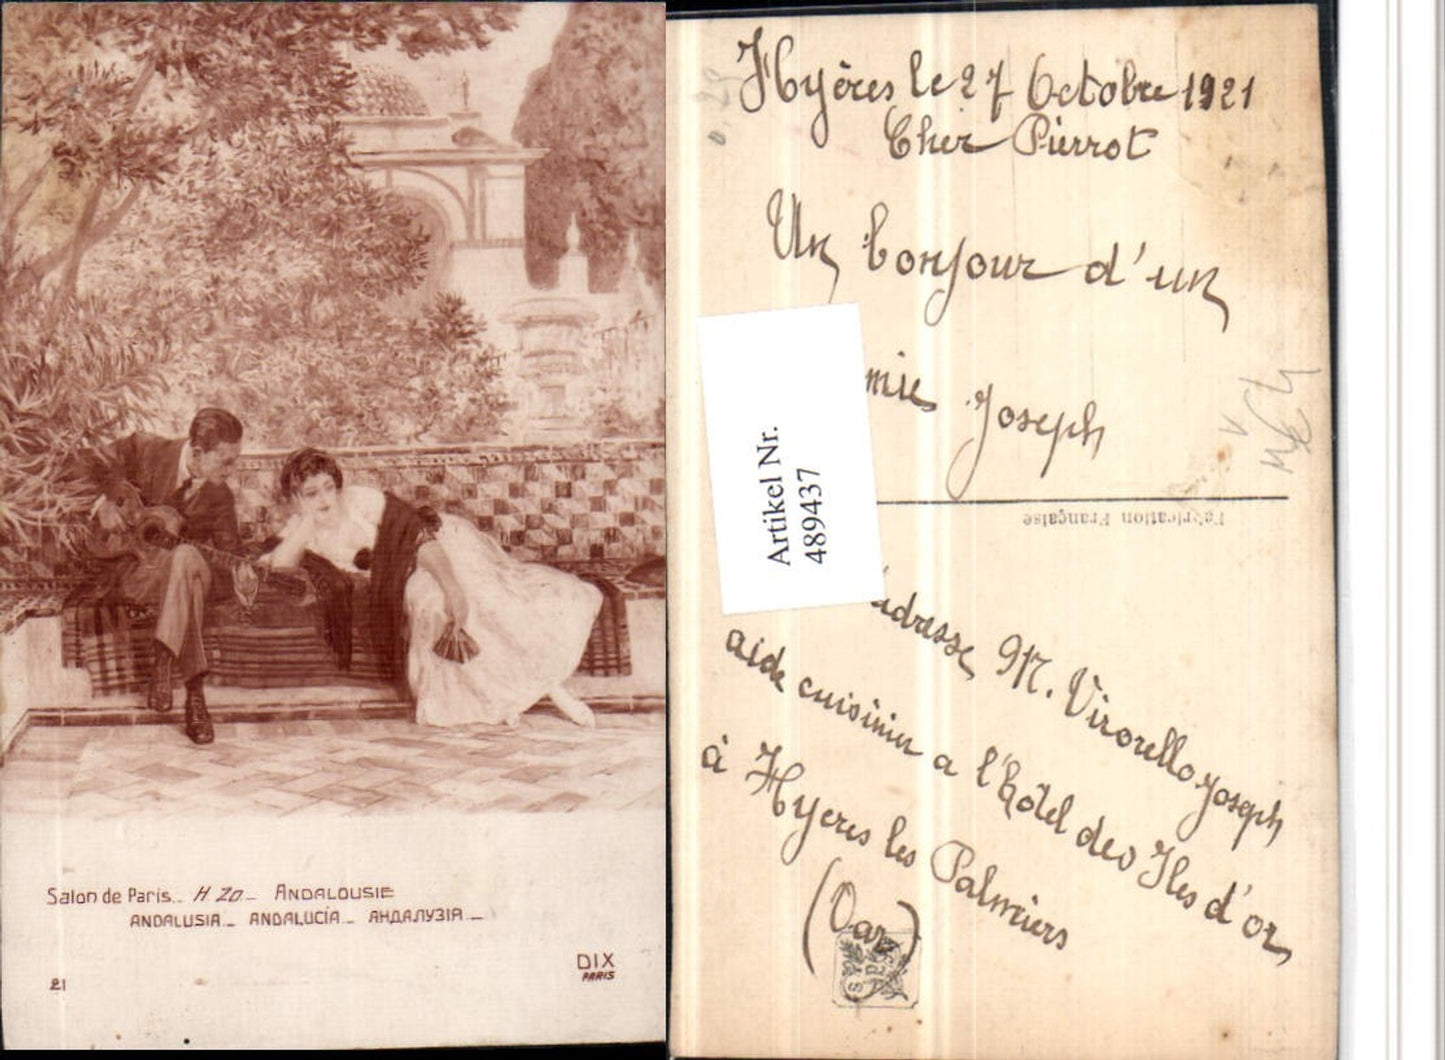 Salon de Paris_ H Zo_ ANDALOUSIE
ANDALUSIA_ ANDALUCÍA_ АНДАЛУЗІЯ_
21
DIX
PARIS
Hyères le 27 Octobre 1921
Cher Pierrot
Un bonjour d'un
Joseph
Artikel Nr.
489437
Fabrication Française
adresse M. Virorello Joseph
aide cuisinier a l'hôtel des Iles d'or
à Hyeres les Palmiers
(Var)